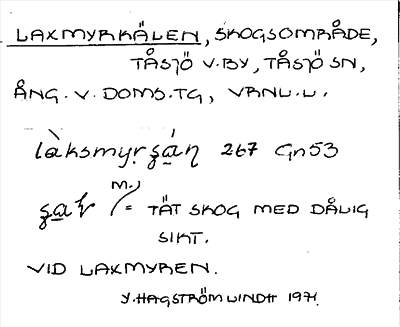 LAXMYRKÄLEN, SKOGSOMRÅDE,
TÅSJÖ V.BY, TÅSJÖ SN,
ÅNG. V. DOMS.TG, VRNL.L.
làksmyṛʂán 267 Gn53
M.,
= TÄT SKOG MED DÅLIG
SIKT.
VID LAXMYREN.
Y. HAGSTRÖM LINDH 1971.